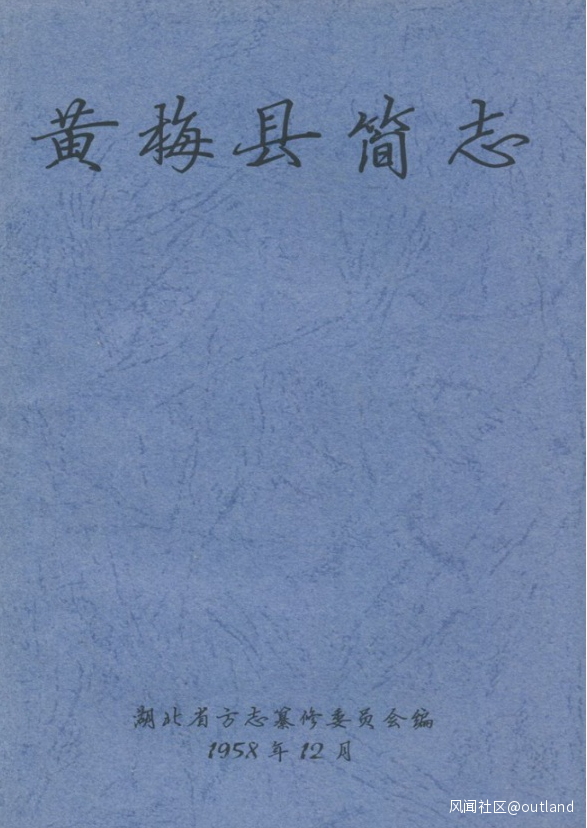 黄梅县简志
湖北省方志纂修委员会编
1958年12月
风闻社区@outland